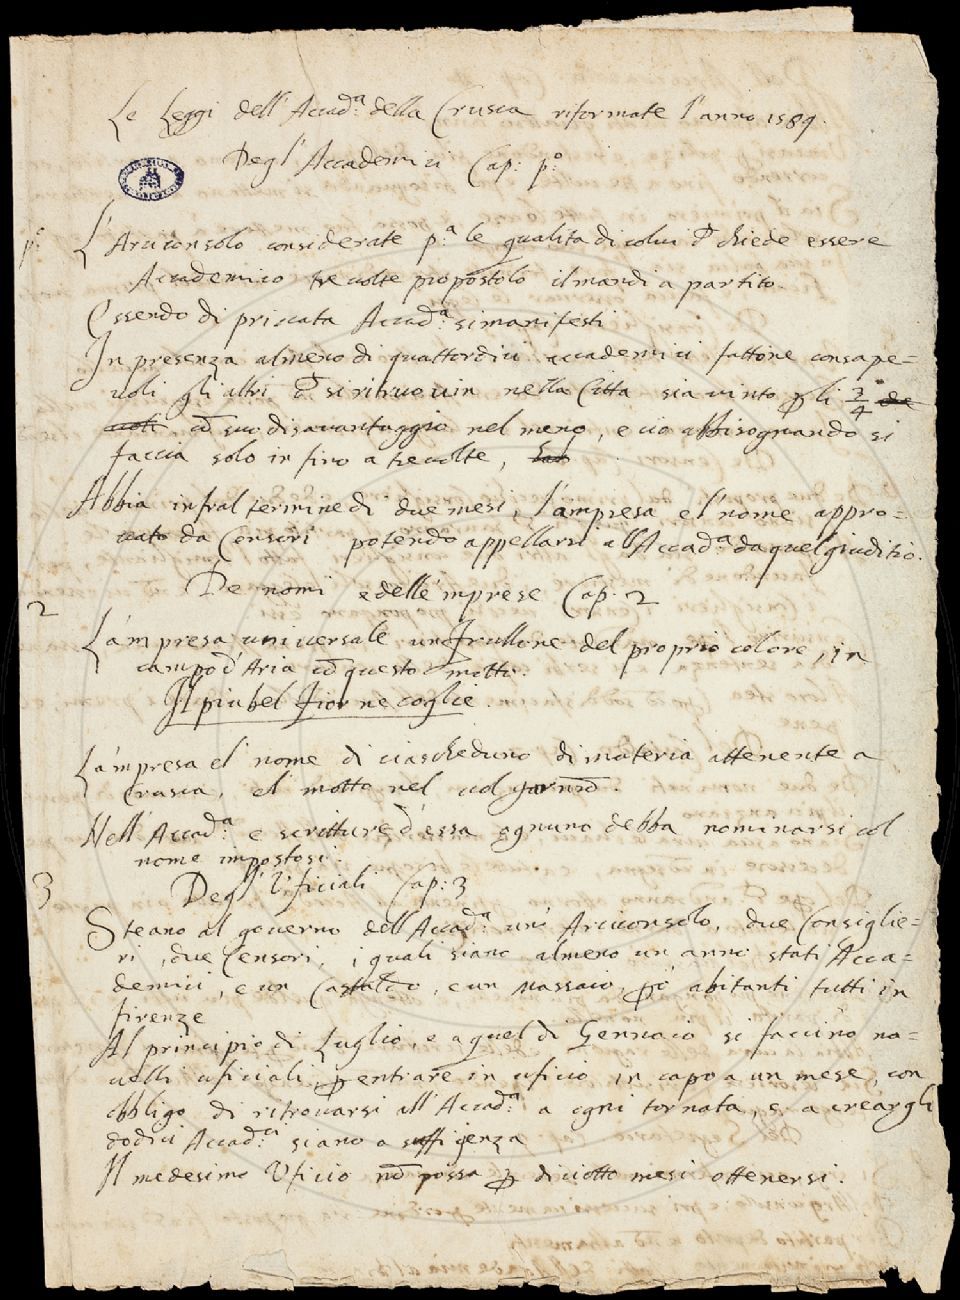 Le Leggi dell'Accad.ª della Crusca riformate l'anno 1589.
Degl'Accademici Cap: p.º
p.º L'Arciconsolo considerate p.ª le qualita di colui ch̃ chiede essere
Accademico tre volte propostolo il mandi a partito.
Essendo di privata Accad.ª si manifesti
In presenza almeno di quattordici accademici fattone consape=
voli gli altri ch̃ si ritruovin nella Citta sia vinto ꝑ li 3/4 de
voti cõ suo disavantaggio nel meno, e ciò abbisognando si
faccia solo in fino a tre volte,
Abbia infral termine di due mesi, l'ampresa e l'nome appro=
vato da Censori potendo appellarsi all'Accad.ª da quel giuditio.
2 De nomi e delle 'mprese Cap. 2
L'ampresa universale un Frullone del proprio colore, in
campo d'Aria cõ questo motto.
Il piu bel fior ne coglie.
L'ampresa e l' nome di ciascheduno di materia attenente a
crusca, e l' motto nel volgar nrõ.
Nell'Accad.ª e scritture d'essa ognuno debba nominarsi col
nome impostosi.
3 Degl'Uficiali Cap: 3
Steano al governo dell'Accad.ª un' Arciconsolo, due Consiglie=
ri, due Censori, i quali siano almeno un anno stati Acca=
demici, e un Castaldo, e un Massaio, ꝑo' abitanti tutti in
firenze
Al principio di Luglio, e a quel di Gennaio si faccino no=
velli uficiali, ꝑ entrare in uficio in capo a un mese, con
obbligo di ritrovarsi all'Accad.ª a ogni tornata, e a creargli
dodici Accad.ci siano a sufficienza
Il medesimo Uficio nõ possa ꝑ diciotto mesi ottenersi.